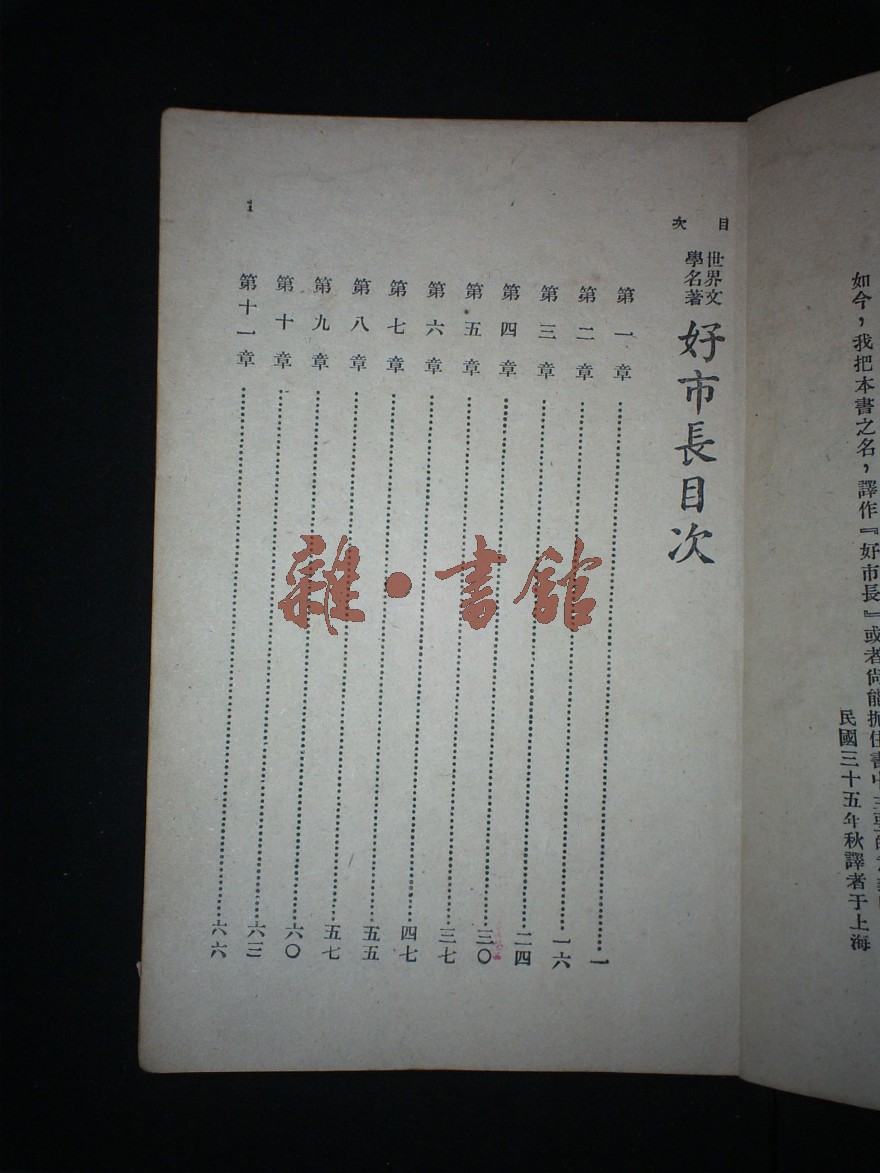 如今，我把本書之名，譯作『好市長』或者尚能抓住書中主要的
民國三十五年秋譯者于上海
目次
世界文學名著
好市長目次
第一章……一
第二章……一六
第三章……二四
第四章……三〇
第五章……三七
第六章……四七
第七章……五五
第八章……五七
第九章……六〇
第十章……六三
第十一章……六六
1
雜·書館